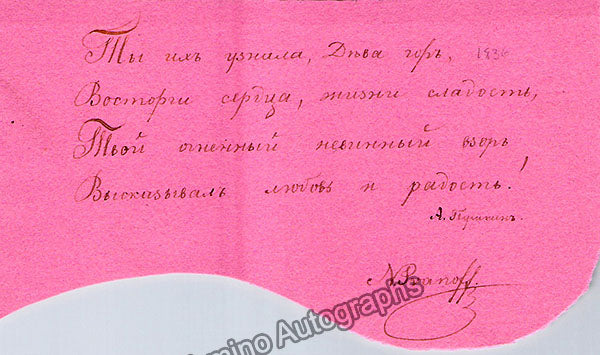 Ты ихъ узнала, Дѣва горъ, 1836
Восторги сердца, жизни сладость,
Твой огненный невинный взоръ
Высказывалъ любовь и радость!
А. Пушкинъ.
mino Autographs